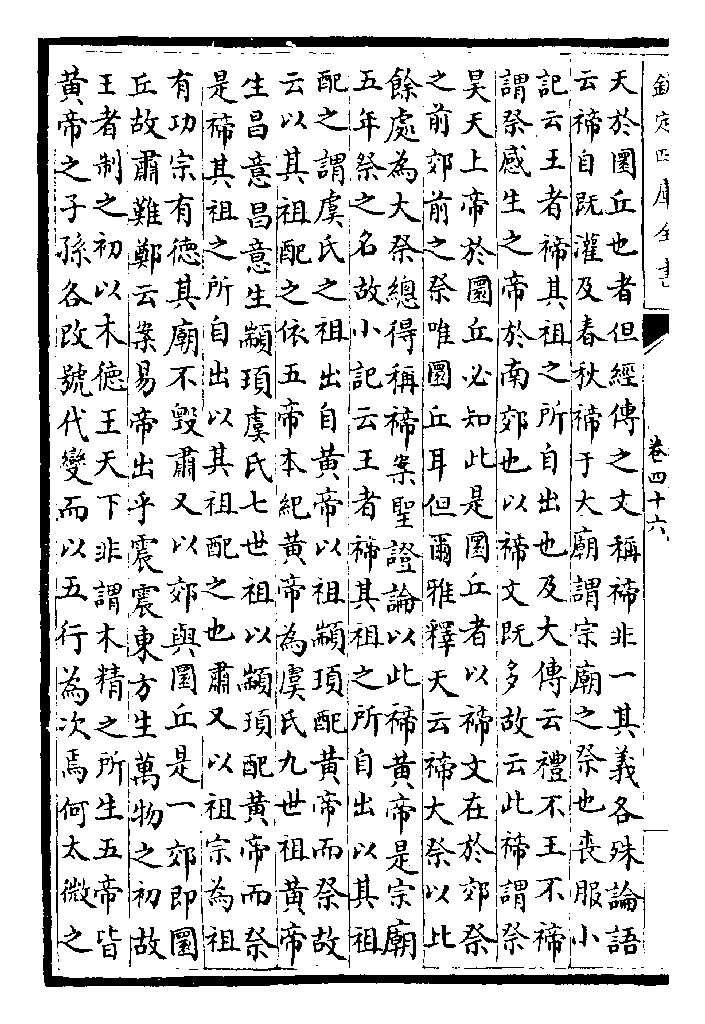 欽定四庫全書
卷四十六
天於圜丘也者但經傳之文稱禘非一其義各殊論語
云禘自既灌及春秋禘于大廟謂宗廟之祭也喪服小
記云王者禘其祖之所自出也及大傳云禮不王不禘
謂祭感生之帝於南郊也以禘文既多故云此禘謂祭
昊天上帝於圜丘必知此是圜丘者以禘文在於郊祭
之前郊前之祭唯圜丘耳但爾雅釋天云禘大祭以比
餘處為大祭總得稱禘案聖證論以此禘黃帝是宗廟
五年祭之名故小記云王者禘其祖之所自出以其祖
配之謂虞氏之祖出自黃帝以祖顓頊配黃帝而祭故
云以其祖配之依五帝本紀黃帝為虞氏九世祖黃帝
生昌意昌意生顓頊虞氏七世祖以顓頊配黃帝而祭
是禘其祖之所自出以其祖配之也肅又以祖宗為祖
有功宗有德其廟不毀肅又以郊與圜丘是一郊即圜
丘故肅難鄭云案易帝出乎震震東方生萬物之初故
王者制之初以木德王天下非謂木精之所生五帝皆
黃帝之子孫各改號代變而以五行為次焉何太微之